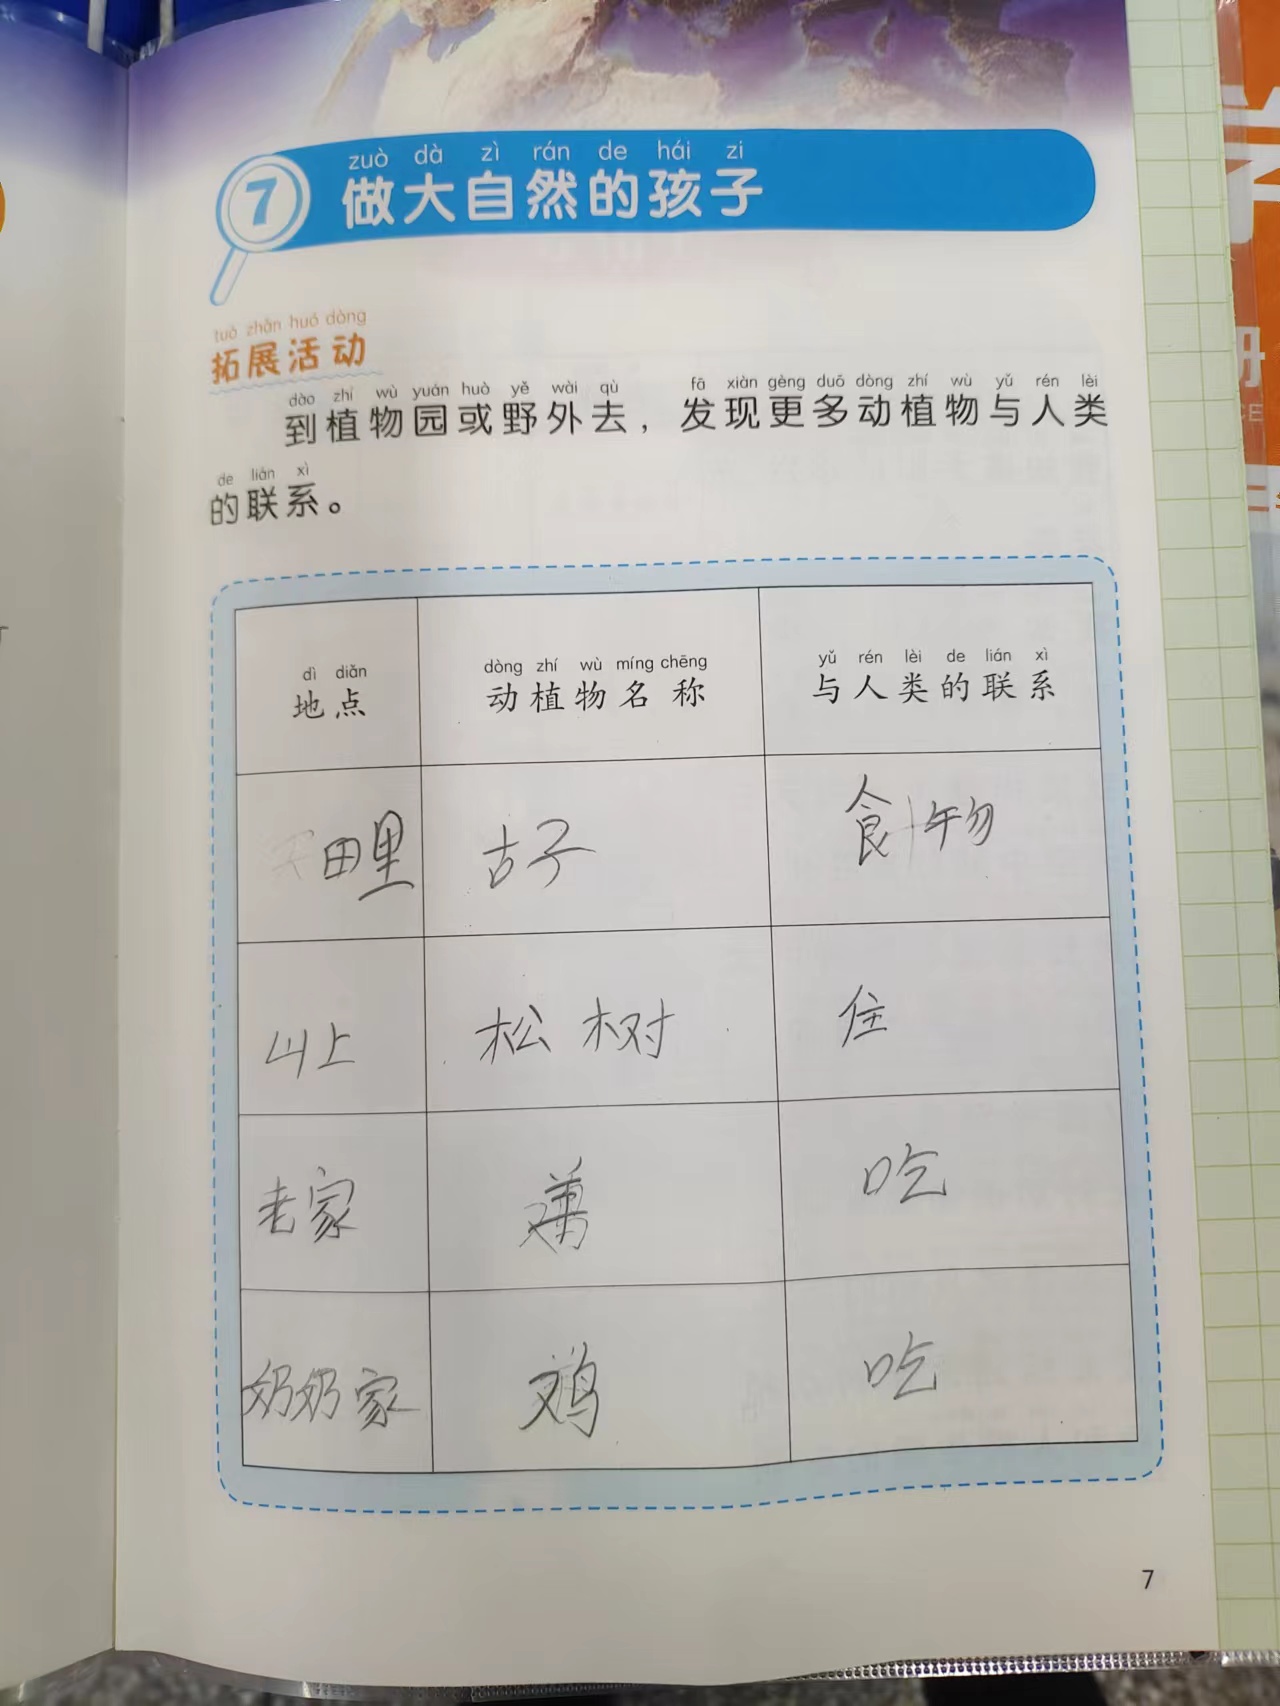 zuò dà zì rán de hái zi
7 做大自然的孩子
tuò zhǎn huó dòng
拓展活动
dào zhí wù yuán huò yě wài qù fā xiàn gèng duō dòng zhí wù yǔ rén lèi
到植物园或野外去，发现更多动植物与人类
de lián xì
的联系。
dì diǎn dòng zhí wù míng chēng yǔ rén lèi de lián xì
地点 动植物名称 与人类的联系
田里 古子 食物
山上 松树 住
老家 吃
奶奶家 鸡 吃
7